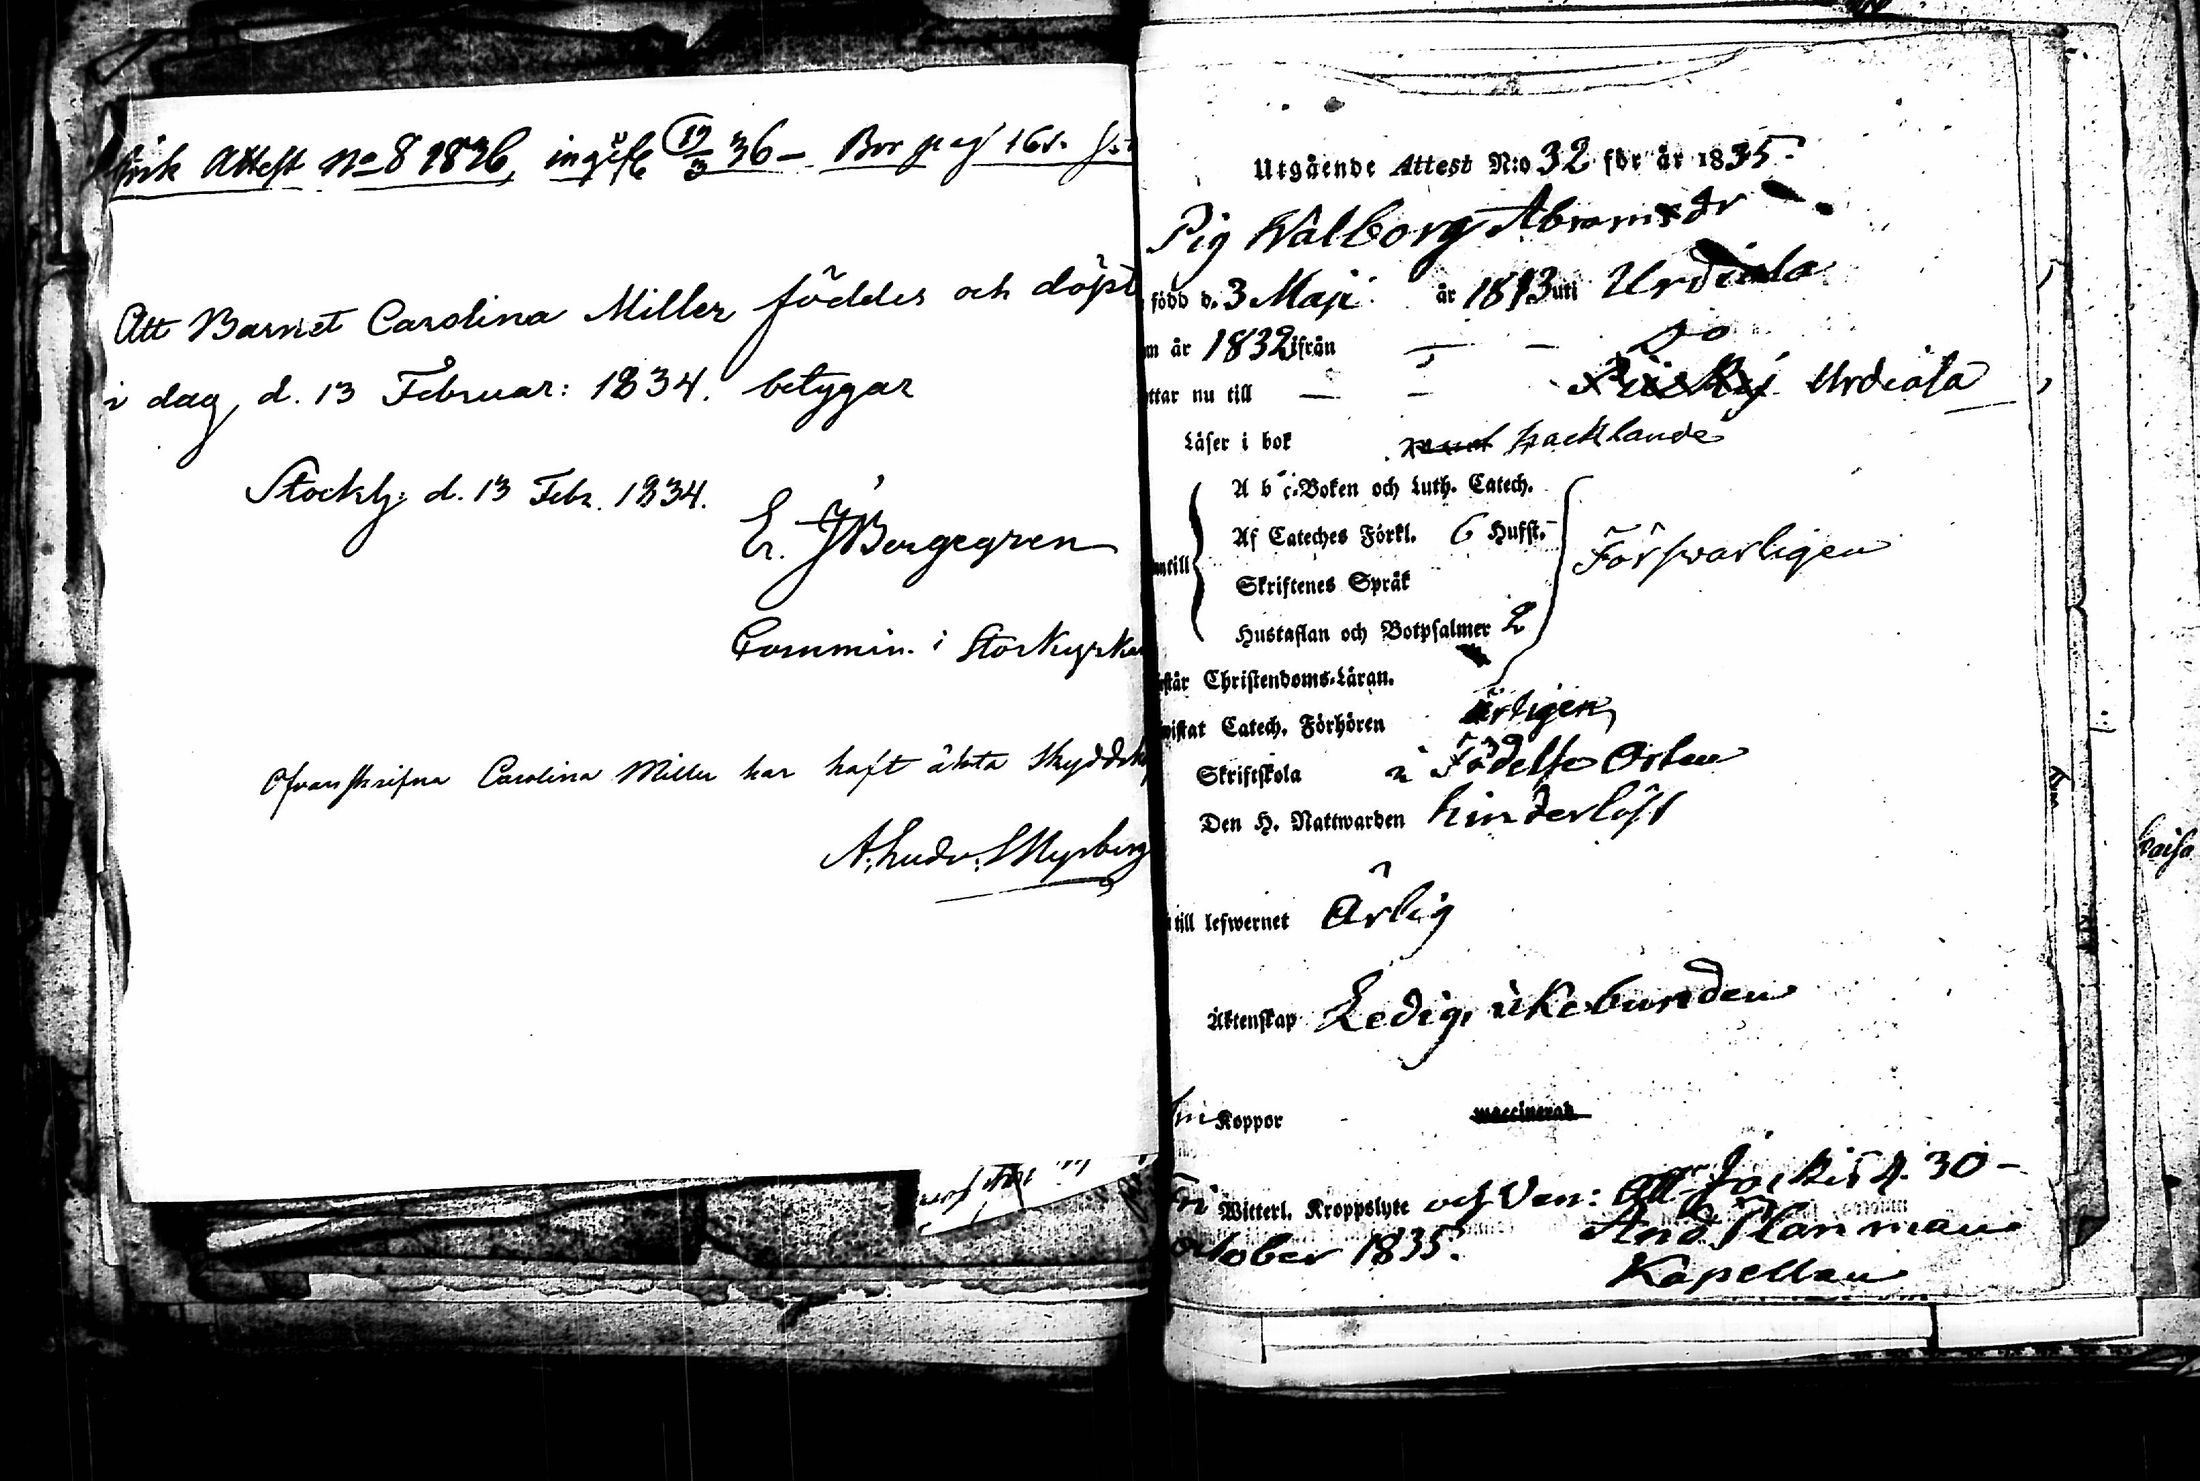 Attest No 8 1836, 17/3 36 – Bor pag 161.
Att Barnet Carolina Miller föddes och döpt
i dag, d. 13 Februar: 1834. betygar
Stockh: d. 13 Febr. 1834.
Er. J Bergegren
Commin. i Storkyrka
Ofvanskrifna Carolina Miller har haft äkta
A. Ludv. Myrberg
Utgående Attest N:o 32 för år 1835.
Pig Walborg Abramsdr
född d. 3 Maji år 1813 uti Urdiala
m år 1832 ifrån — — Do
ttar nu till — — Urdiala
Läser i bok hacklande
A b c-Boken och Luth. Catech.
Af Cateches Förkl. 6 Hufst.
Förswarligen
ntill
Skriftenes Språk
Hustaflan och Botpsalmer 2
står Christendoms-Läran.
wistat Catech. Förhören årligen
Skriftskola i Födelse Orten
Den H. Nattwarden hinderlöst
till lefwernet Ärlig
Äktenskap Ledig, ickebunden
Koppor waccinerad
Fri Witterl. Kroppslyte och Ven: Jockis d. 30 –
october 1835. And Planman
Kapellan
Kaisa